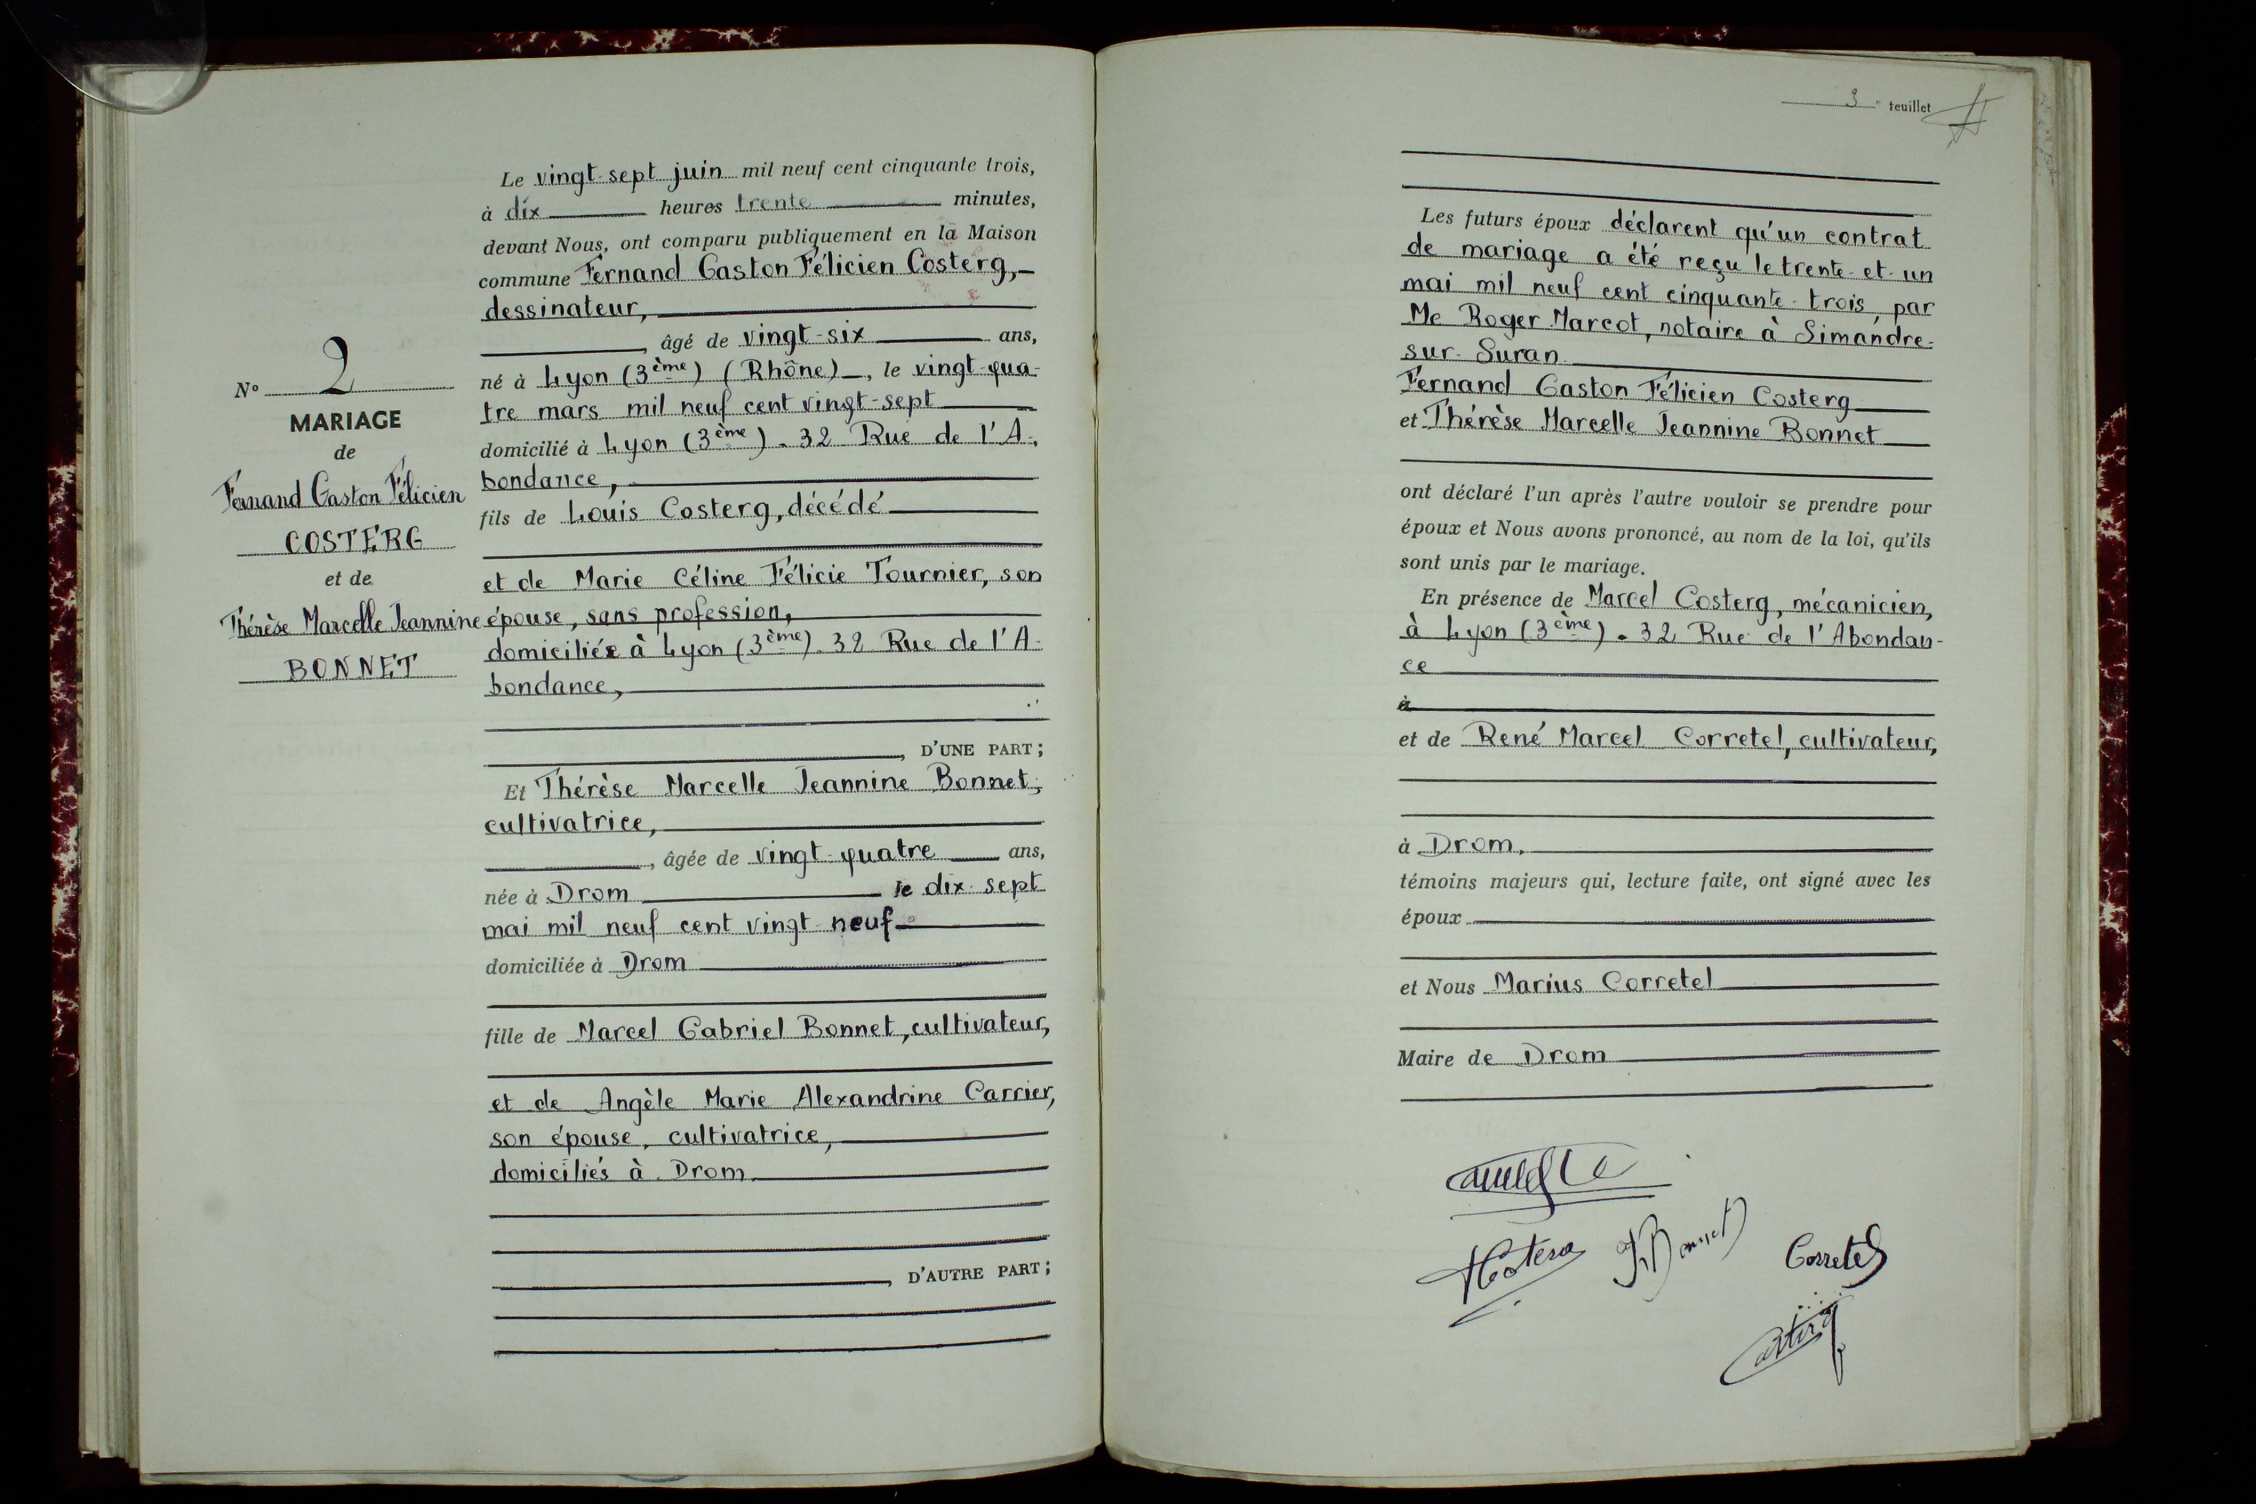 Le vingt-sept juin mil neuf cent cinquante trois,
à dix heures trente minutes,
devant Nous, ont comparu publiquement en la Maison
commune Fernand Gaston Félicien Costerg,
dessinateur,
, âgé de vingt-six ans,
né à Lyon (3ème) (Rhône), le vingt-qua-
tre mars mil neuf cent vingt-sept
domicilié à Lyon (3ème). 32 Rue de l'A-
bondance,
fils de Louis Costerg, décédé
et de Marie Céline Félicie Tournier, son
épouse, sans profession,
domiciliée à Lyon (3ème). 32 Rue de l'A-
bondance,
, D'UNE PART;
Et Thérèse Marcelle Jeannine Bonnet,
cultivatrice,
, âgée de vingt-quatre ans,
née à Drom le dix-sept
mai mil neuf cent vingt-neuf
domiciliée à Drom
fille de Marcel Gabriel Bonnet, cultivateur,
et de Angèle Marie Alexandrine Carrier,
son épouse, cultivatrice,
domiciliés à Drom
, D'AUTRE PART;
N° 2
MARIAGE
de
Fernand Gaston Félicien
COSTERG
et de
Thérèse Marcelle Jeannine
BONNET
3e feuillet
Les futurs époux déclarent qu'un contrat
de mariage a été reçu le trente-et-un
mai mil neuf cent cinquante-trois, par
Me Roger Marcot, notaire à Simandre-
sur-Suran
Fernand Gaston Félicien Costerg
et Thérèse Marcelle Jeannine Bonnet
ont déclaré l'un après l'autre vouloir se prendre pour
époux et Nous avons prononcé, au nom de la loi, qu'ils
sont unis par le mariage.
En présence de Marcel Costerg, mécanicien,
à Lyon (3ème). 32 Rue de l'Abondan-
ce
à
et de René Marcel Corretel, cultivateur,
à Drom,
témoins majeurs qui, lecture faite, ont signé avec les
époux
et Nous Marius Corretel
Maire de Drom
Bonnet
Corretel
Costerg